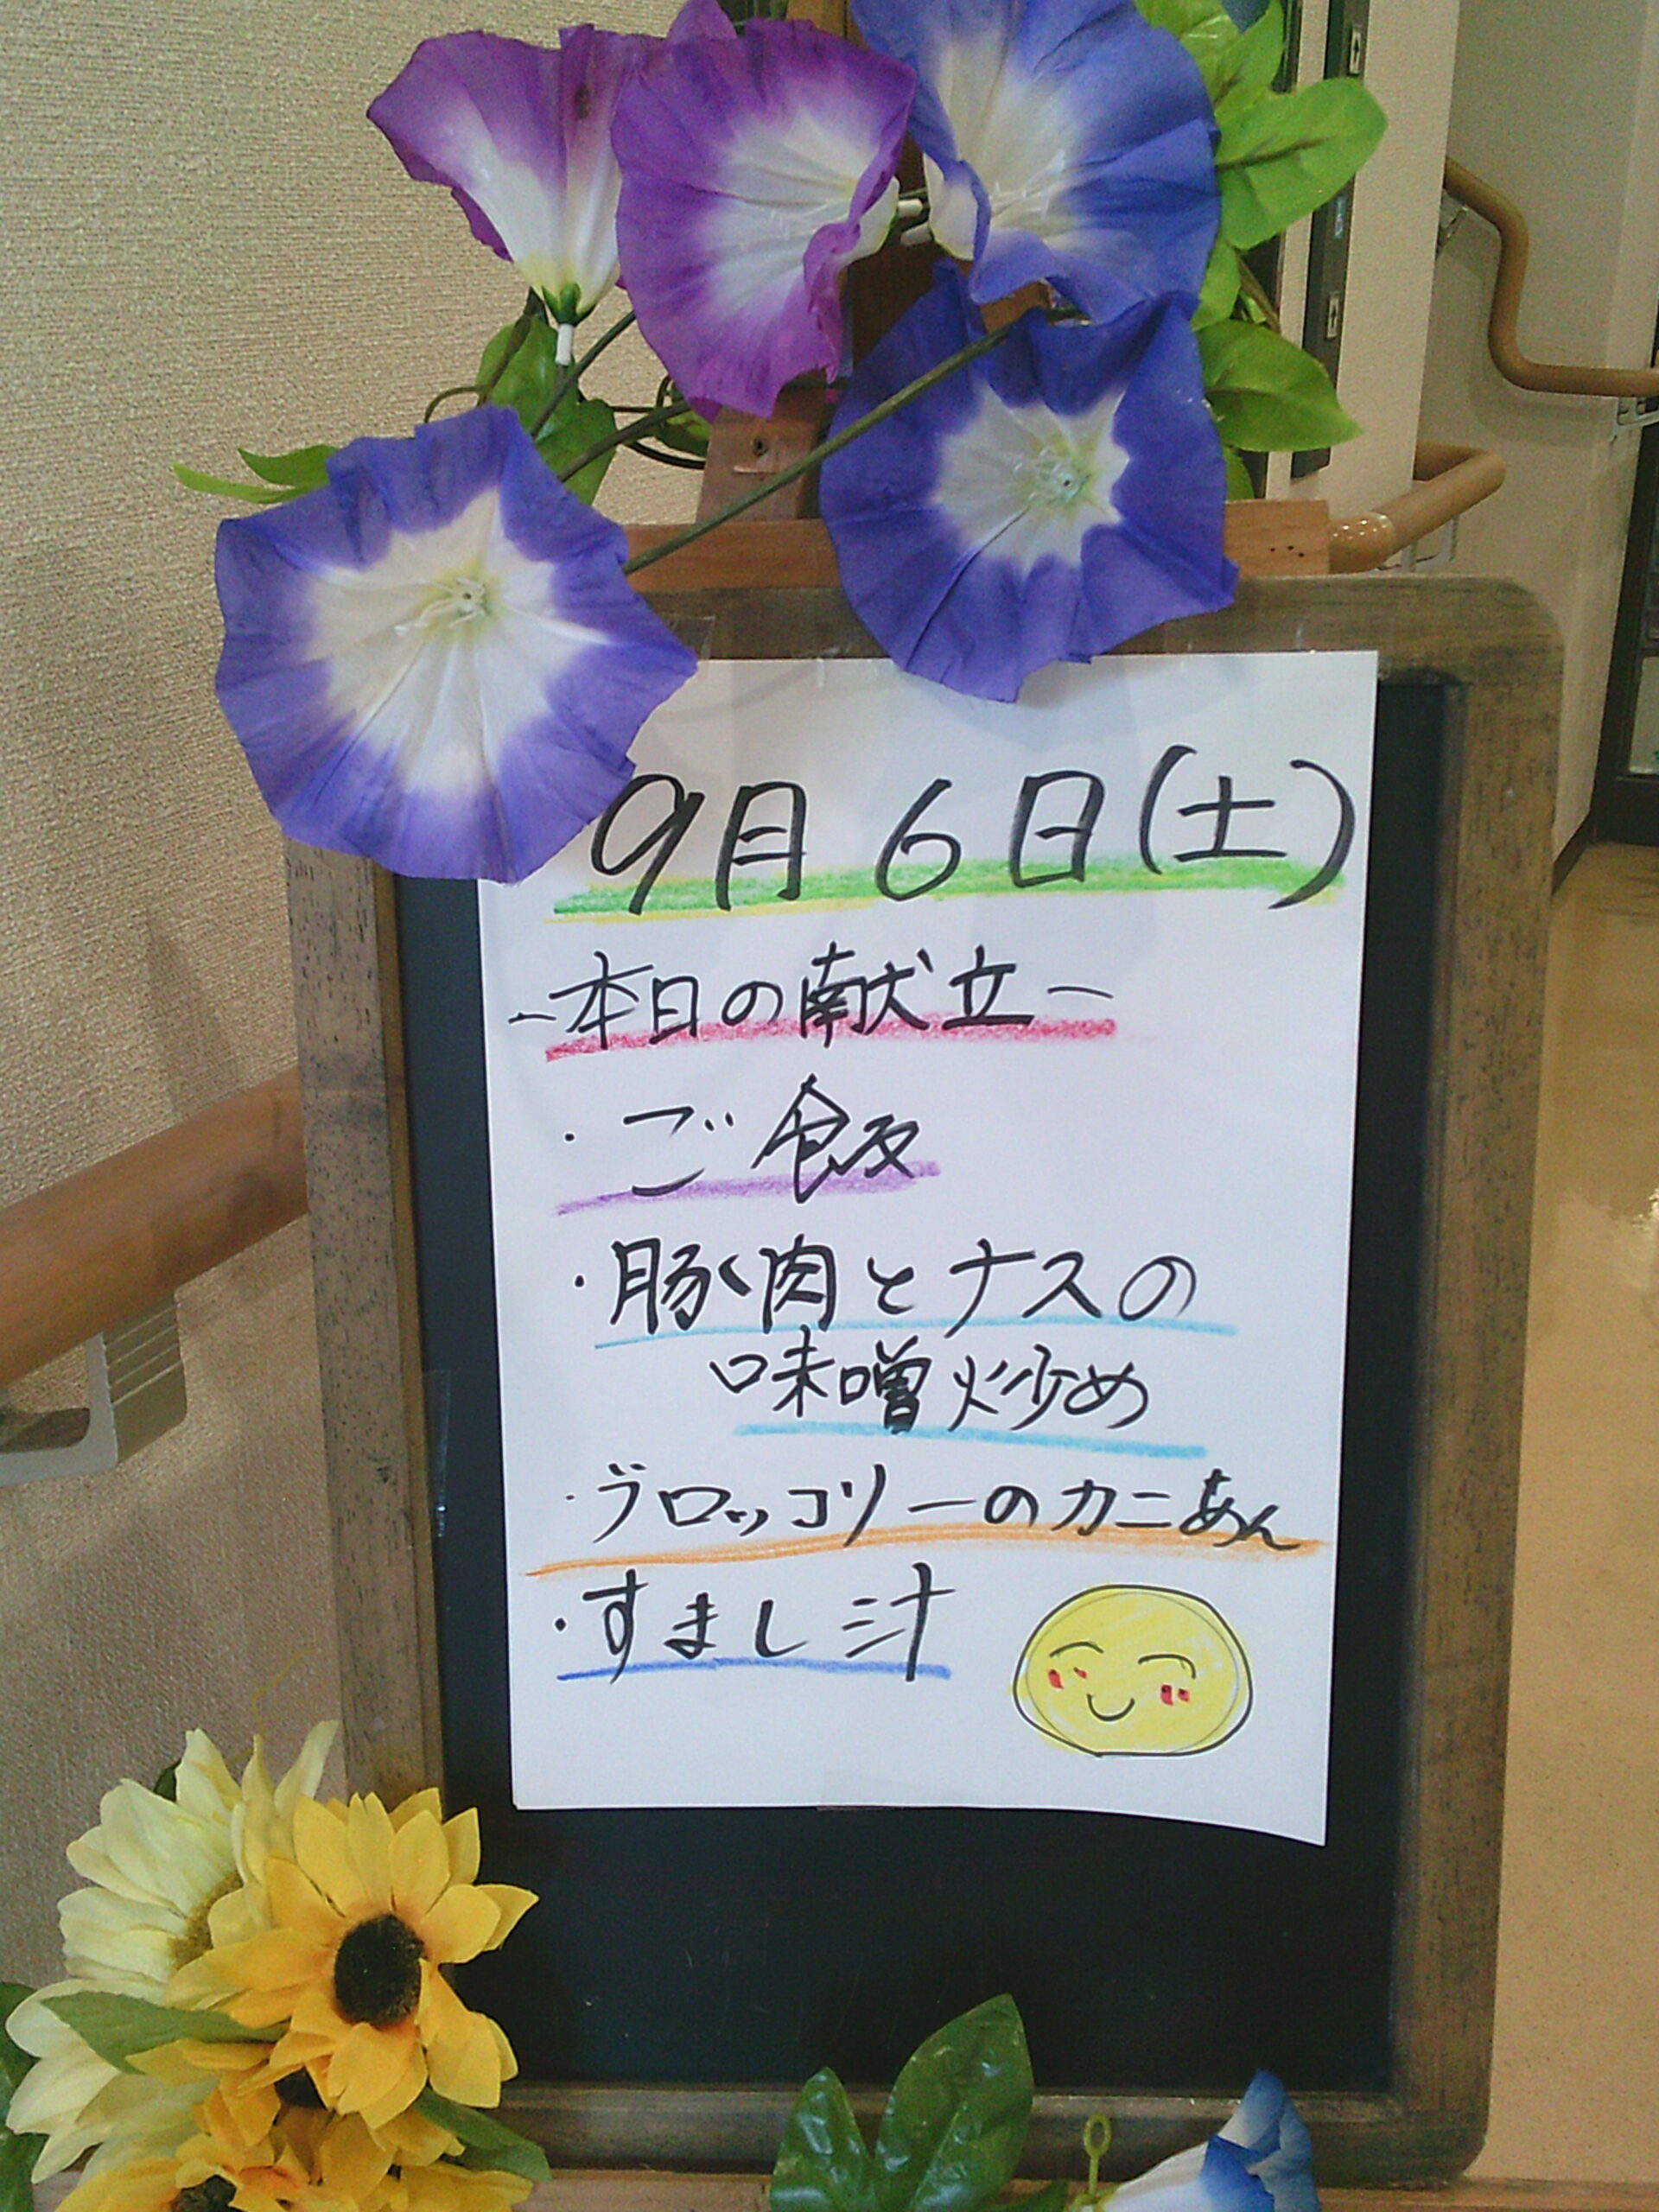 9月6日(土)
-本日の献立-
・ご飯
・豚肉とナスの
味噌炒め
・ブロッコリーのカニあん
・すまし汁